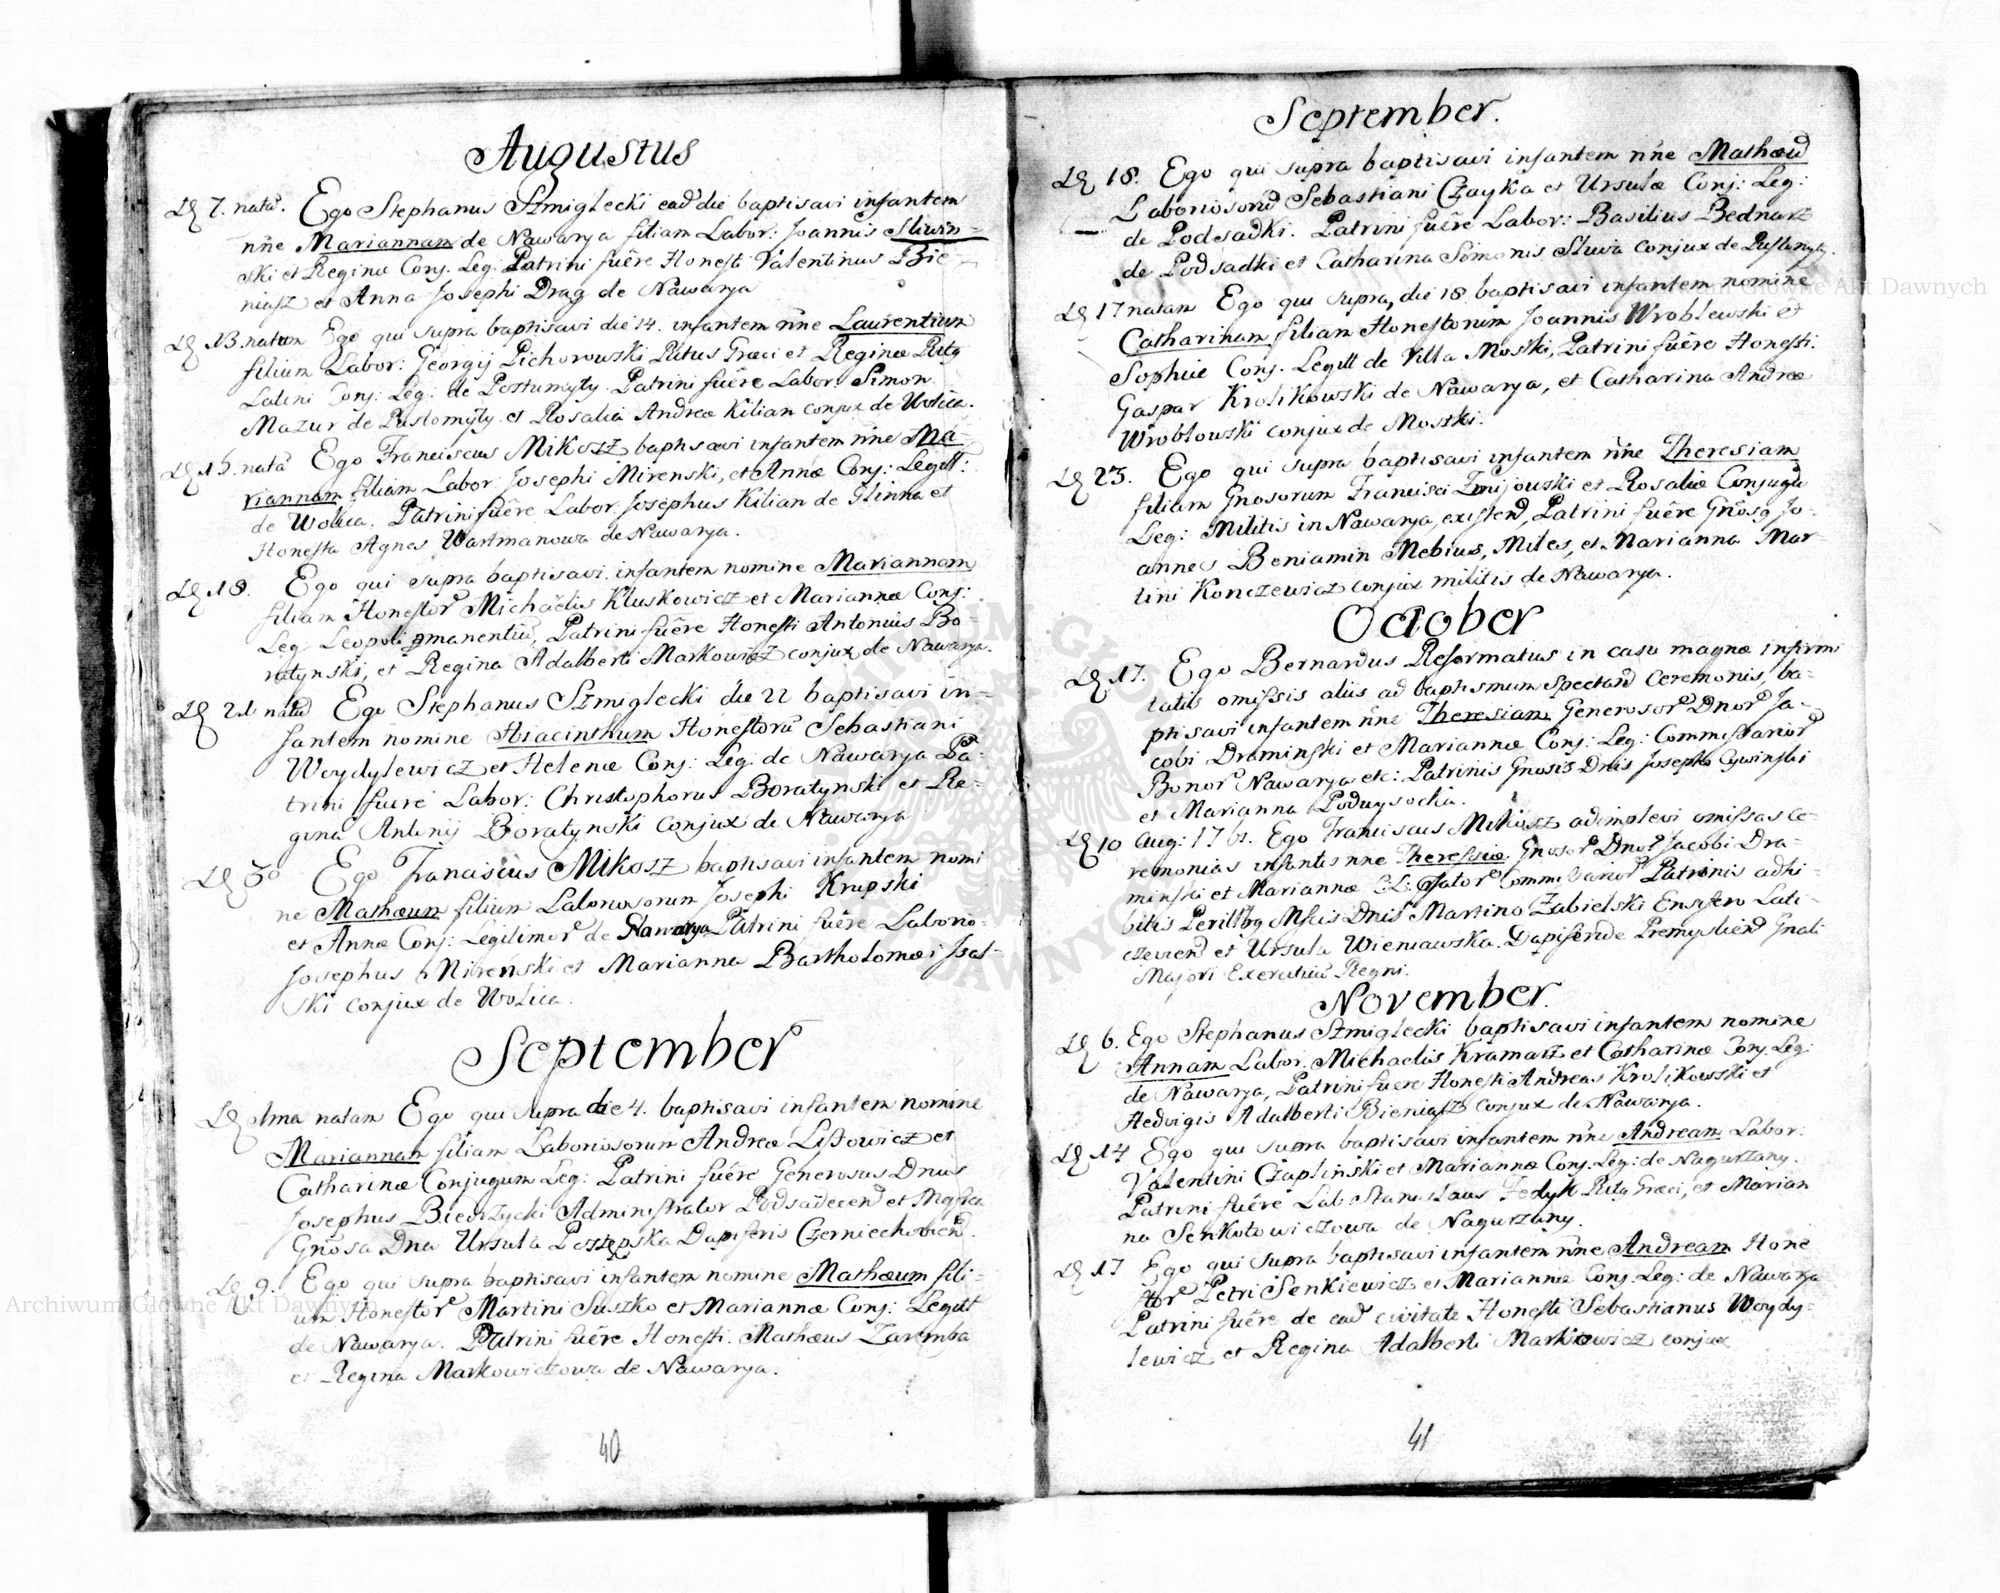 Augustus
7. natã. Ego Stephanus Szmiglecki eadẽ die baptisavi infantem
nñe Mariannam de Nawarya filiam Labor: Joannis Sliwin=
ski et Regina Conj. Leg: Patrini fuêre Honesti Valentinus Bie
niasz et Anna Josephi Drag de Nawarya
13. natum Ego qui supra baptisavi die 14. infantem nñe Laurentium
filium Labor: Georgij Pichorowski Ritus Græci et Reginæ Ritg
Latini Conj: Leg: de Postumyty. Patrini fuêre Labor: Simon
Mazur de Pustomyty et Rosalia Andreæ Kilian conjux de Wolica.
15. natã Ego Franciscus Mikosz baptisavi infantem nñe Ma
riannam filiam Labor: Josephi Mirenski, et Annæ Conj: Legitt:
de Wolica. Patrini fuêre Labor: Josephus Kilian de Glinna et
Honesta Agnes Wartmanowa de Nawarya.
18. Ego qui supra baptisavi infantem nomine Mariannam
filiam Honestor Michaëlis Kluskowicz et Mariannæ Conj:
Leg: Leopoli pmanentiũ, Patrini fuêre Honesti Antonius Bo=
ratynski, et Regina Adalberti Markowicz conjux de Nawarya.
21 natũ Ego Stephanus Szmiglecki die 22 baptisavi in=
fantem nomine Hiacinthum Honestorũ Sebastiani
Woydylewicz et Helenæ Conj: Leg: de Nawarya Pa=
trini fuere Labor: Christophorus Boratynski et Re=
gina Antonij Boratynski Conjux de Nawarya
30 Ego Franciscus Mikosz baptisavi infantem nomi
ne Mathæum filium Laboriosorum Josephi Krupski
et Annæ Conj: Legitimor de Nawarya Patrini fuêre Laborio=
Josephus Mireński et Marianna Bartholomæi Jsal=
ski conjux de Wolica.
September
1ma natam Ego qui supra die 4. baptisavi infantem nomine
Mariannam filiam Laboriosorum Andreæ Lisowicz et
Catharinæ Conjugum Leg: Patrini fuêre Generosus Dnus
Josephus Biedrzycki Administrator Podsadecen et Mgfica
Gnosa Dna Ursula Dapiferis Czerniechovien.
9. Ego qui supra baptisavi infantem nomine Mathæum fili=
um Honestor Martini Suszko et Mariannæ Conj: Legitt
de Nawarya. Patrini fuêre Honesti. Mathæus Zaremba
et Regina Markowiczowa de Nawarya.
40
September.
18. Ego qui supra baptisavi infantem nñe Mathæũ
Laboriosorũ Sebastiani Czayka et Ursulæ Conj: Leg:
de Podsadki. Patrini fuêre Labor: Basilius Bednarz
de Podsadki et Catharina Simonis Sliwa conjux de Pustomyty.
17 natam Ego qui supra, die 18 baptisavi infantem nomine
Catharinam filiam Honestorum Joannis Wroblewski et
Sophiæ Conj. Legitt de Villa Mostki, Patrini fuêre Honesti.
Gaspar Krolikowski de Nawarya, et Catharina Andreæ
Wroblowski conjux de Mostki.
23. Ego qui supra baptisavi infantem nñe Theresiam
filiam Gnosorum Francisci Zmijowski et Rosaliæ Conjugũ
Leg: Militis in Nawarya existen, Patrini fuêre Gnosg Jo=
annes Beniamin Mebius, Miles, et Marianna Mar=
tini Konczewicz conjux militis de Nawarya.
October
17. Ego Bernardus Reformatus in casu magnæ infirmi
tatis omissis aliis ad baptismum spectan Ceremoniis, ba=
ptisavi infantem nñe Theresiam Generosor Dnor Ja=
cobi Draminski et Mariannæ Conj: Leg: Commissarior
Bonor Nawarya etc: Patrinis Gnosis Dnis Josepho Cywinski
et Marianna Podwysocka.
10 Aug: 1761. Ego Franciscus Mikosz adimplevi omissas Ce=
remonias infantis nñe Theressiæ Gnosor Dnor Jacobi Dra=
minski et Mariannæ C:L: Commissarior Patrinis adhi=
bitis Perillbg Mfcis Dnis Martino Zabielski Ensifero Lati=
czevien et Ursula Wieniawska. Dapiferide Premyslien Gnali
Majori Exercituũ Regni.
November.
6. Ego Stephanus Szmiglecki baptisavi infantem nomine
Annam Labor. Michaelis Kramarz et Catharinæ Conj. Leg:
de Nawarya, Patrini fuere Honesti Andreas Krolikowski et
Hedvigis Adalberti Bieniasz conjux de Nawarya.
14 Ego qui supra baptisavi infantem nñe Andream Labor:
Valentini Czapliński et Mariannæ Conj. Leg: de Nagurzany.
Patrini fuêrê Lab: Stanislaus Fedyk Ritg Græci, et Marian
na Senkotowiczowa de Nagurzany.
17 Ego qui supra baptisavi infantem nñe Andream Hone
stor Petri Senkiewicz et Mariannæ Conj. Leg: de Nawarya
Patrini fuêre de eadẽ civitate Honesti Sebastianus Woydy=
lewicz et Regina Adalberti Markiowicz conjux
41
Archiwum Główne Akt Dawnych
Archiwum Główne Akt Dawnych